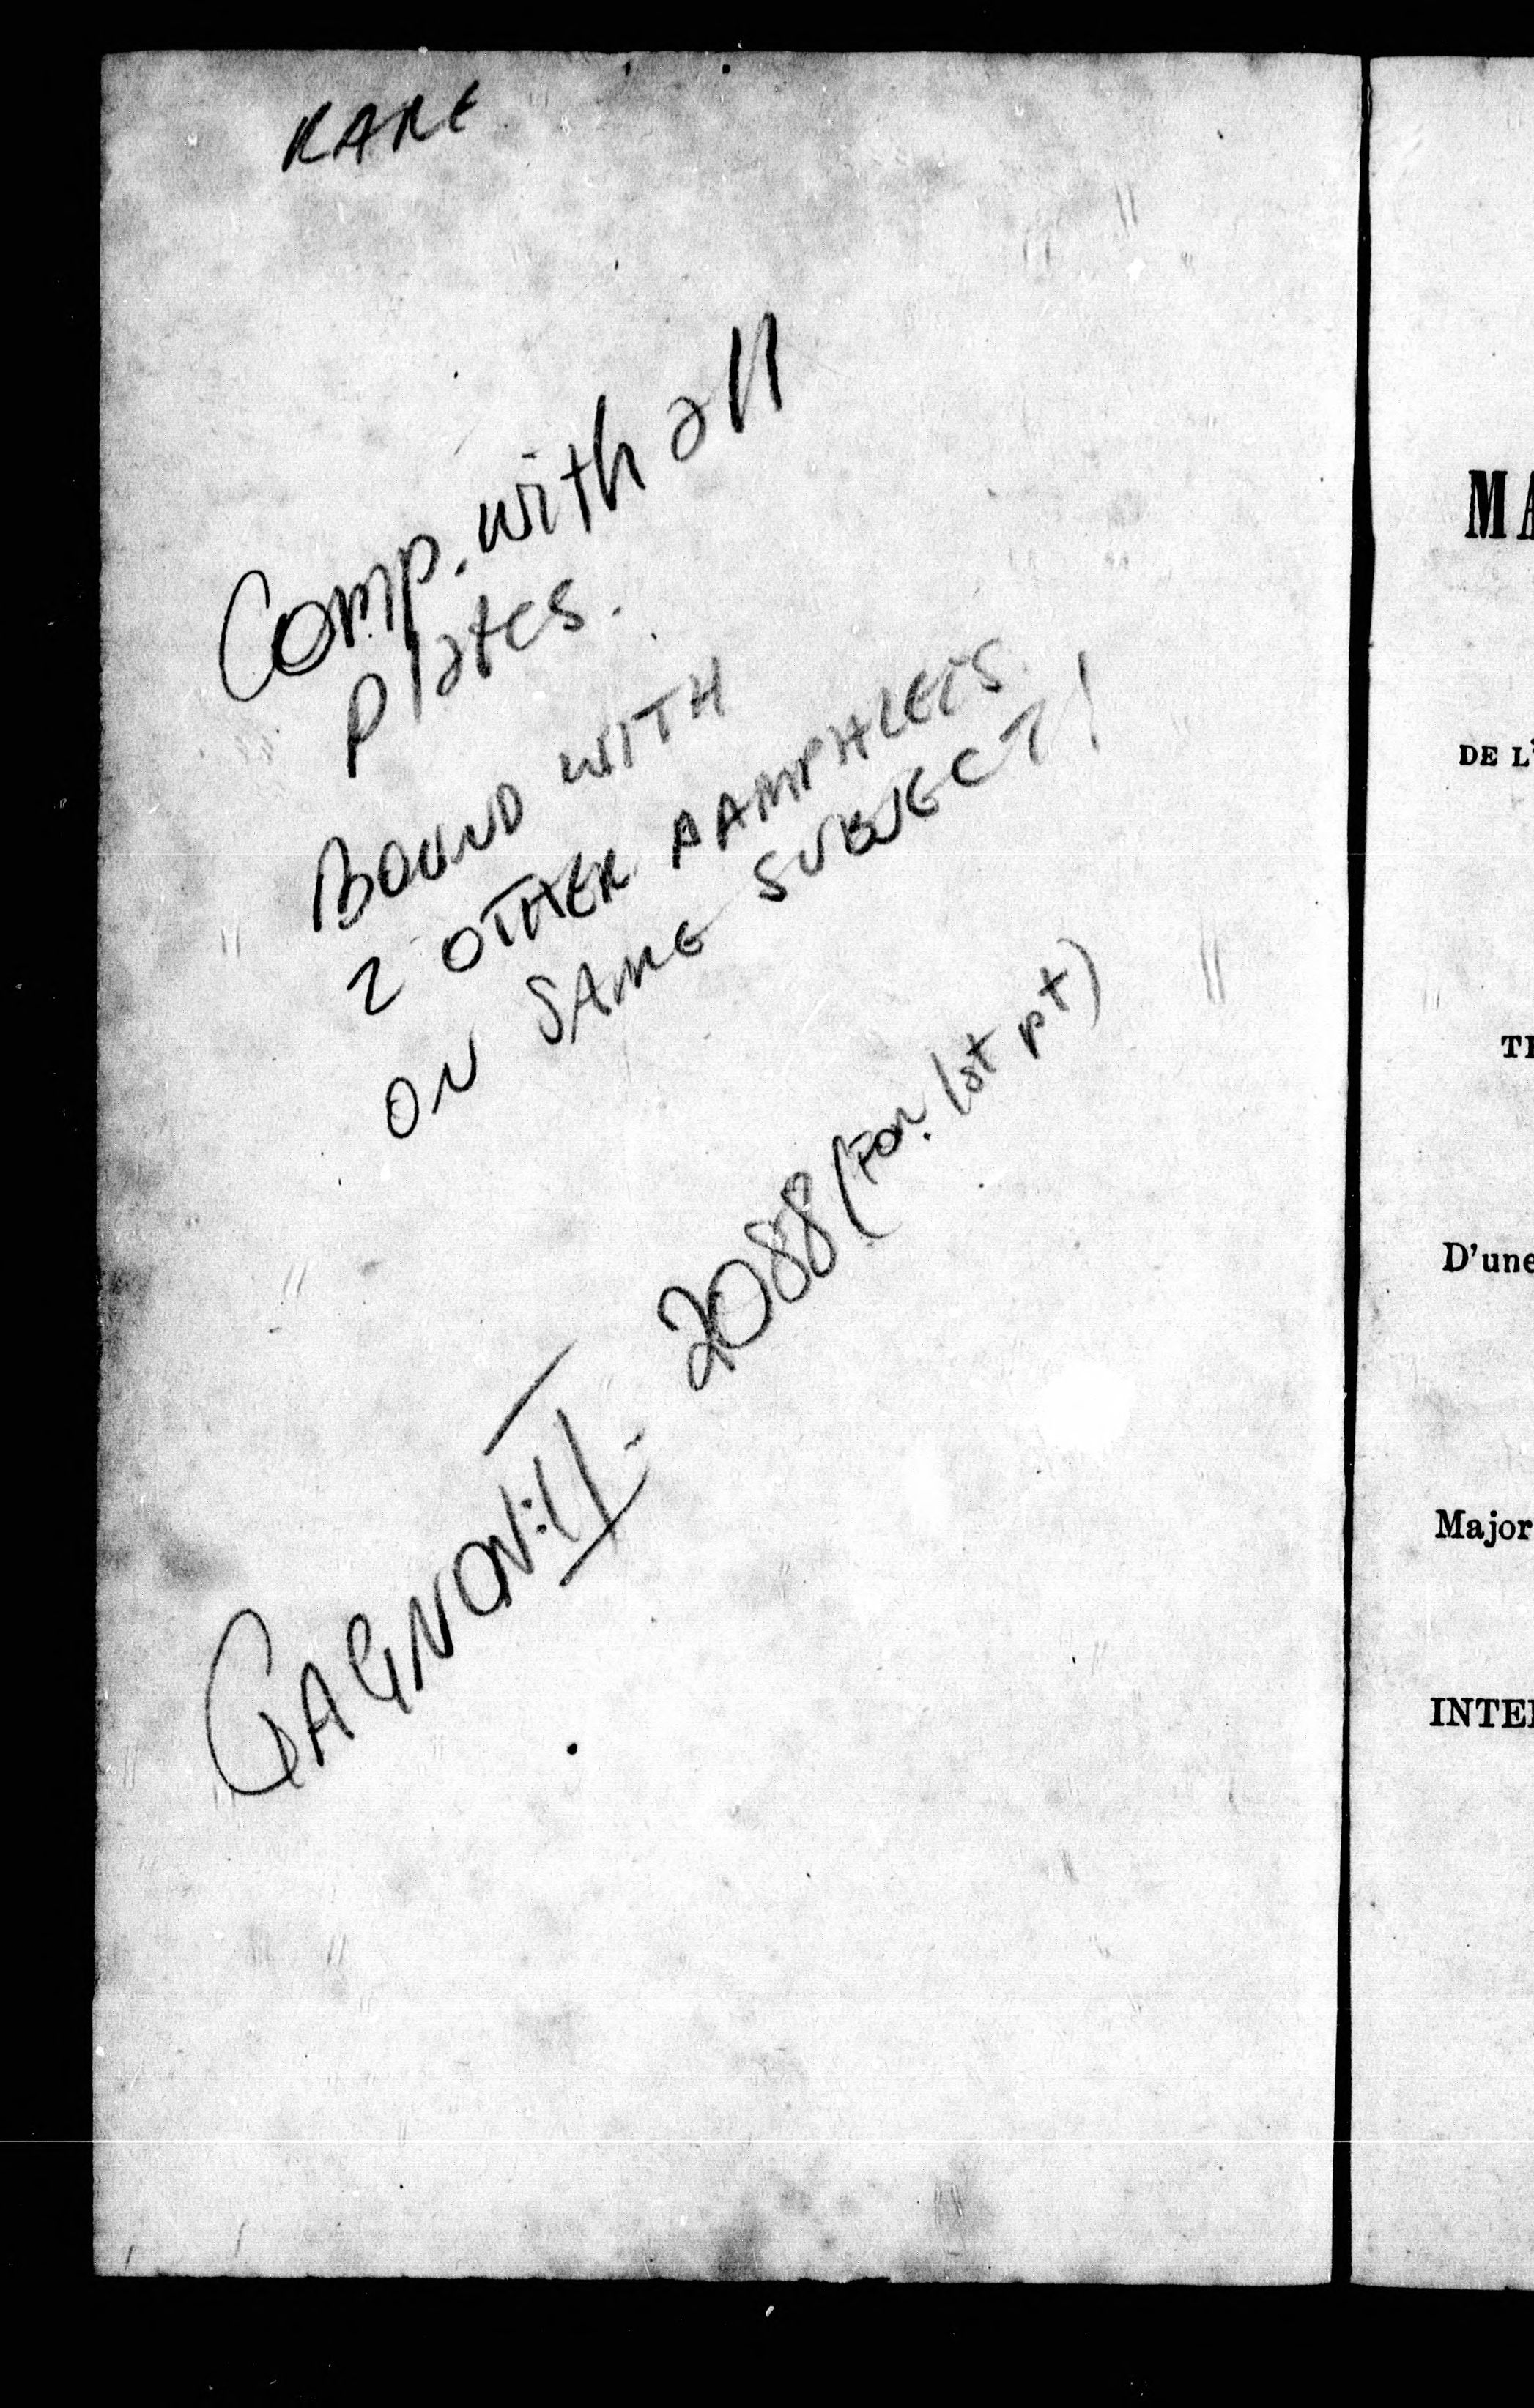 RARE
Comp. with all
plates.
BOUND WITH
2 OTHER PAMPHLETS
ON SAME SUBJECT!
GAGNON: II - 2088 (For. 1st pt)
MA
DE L'
D'une
Major
INTE